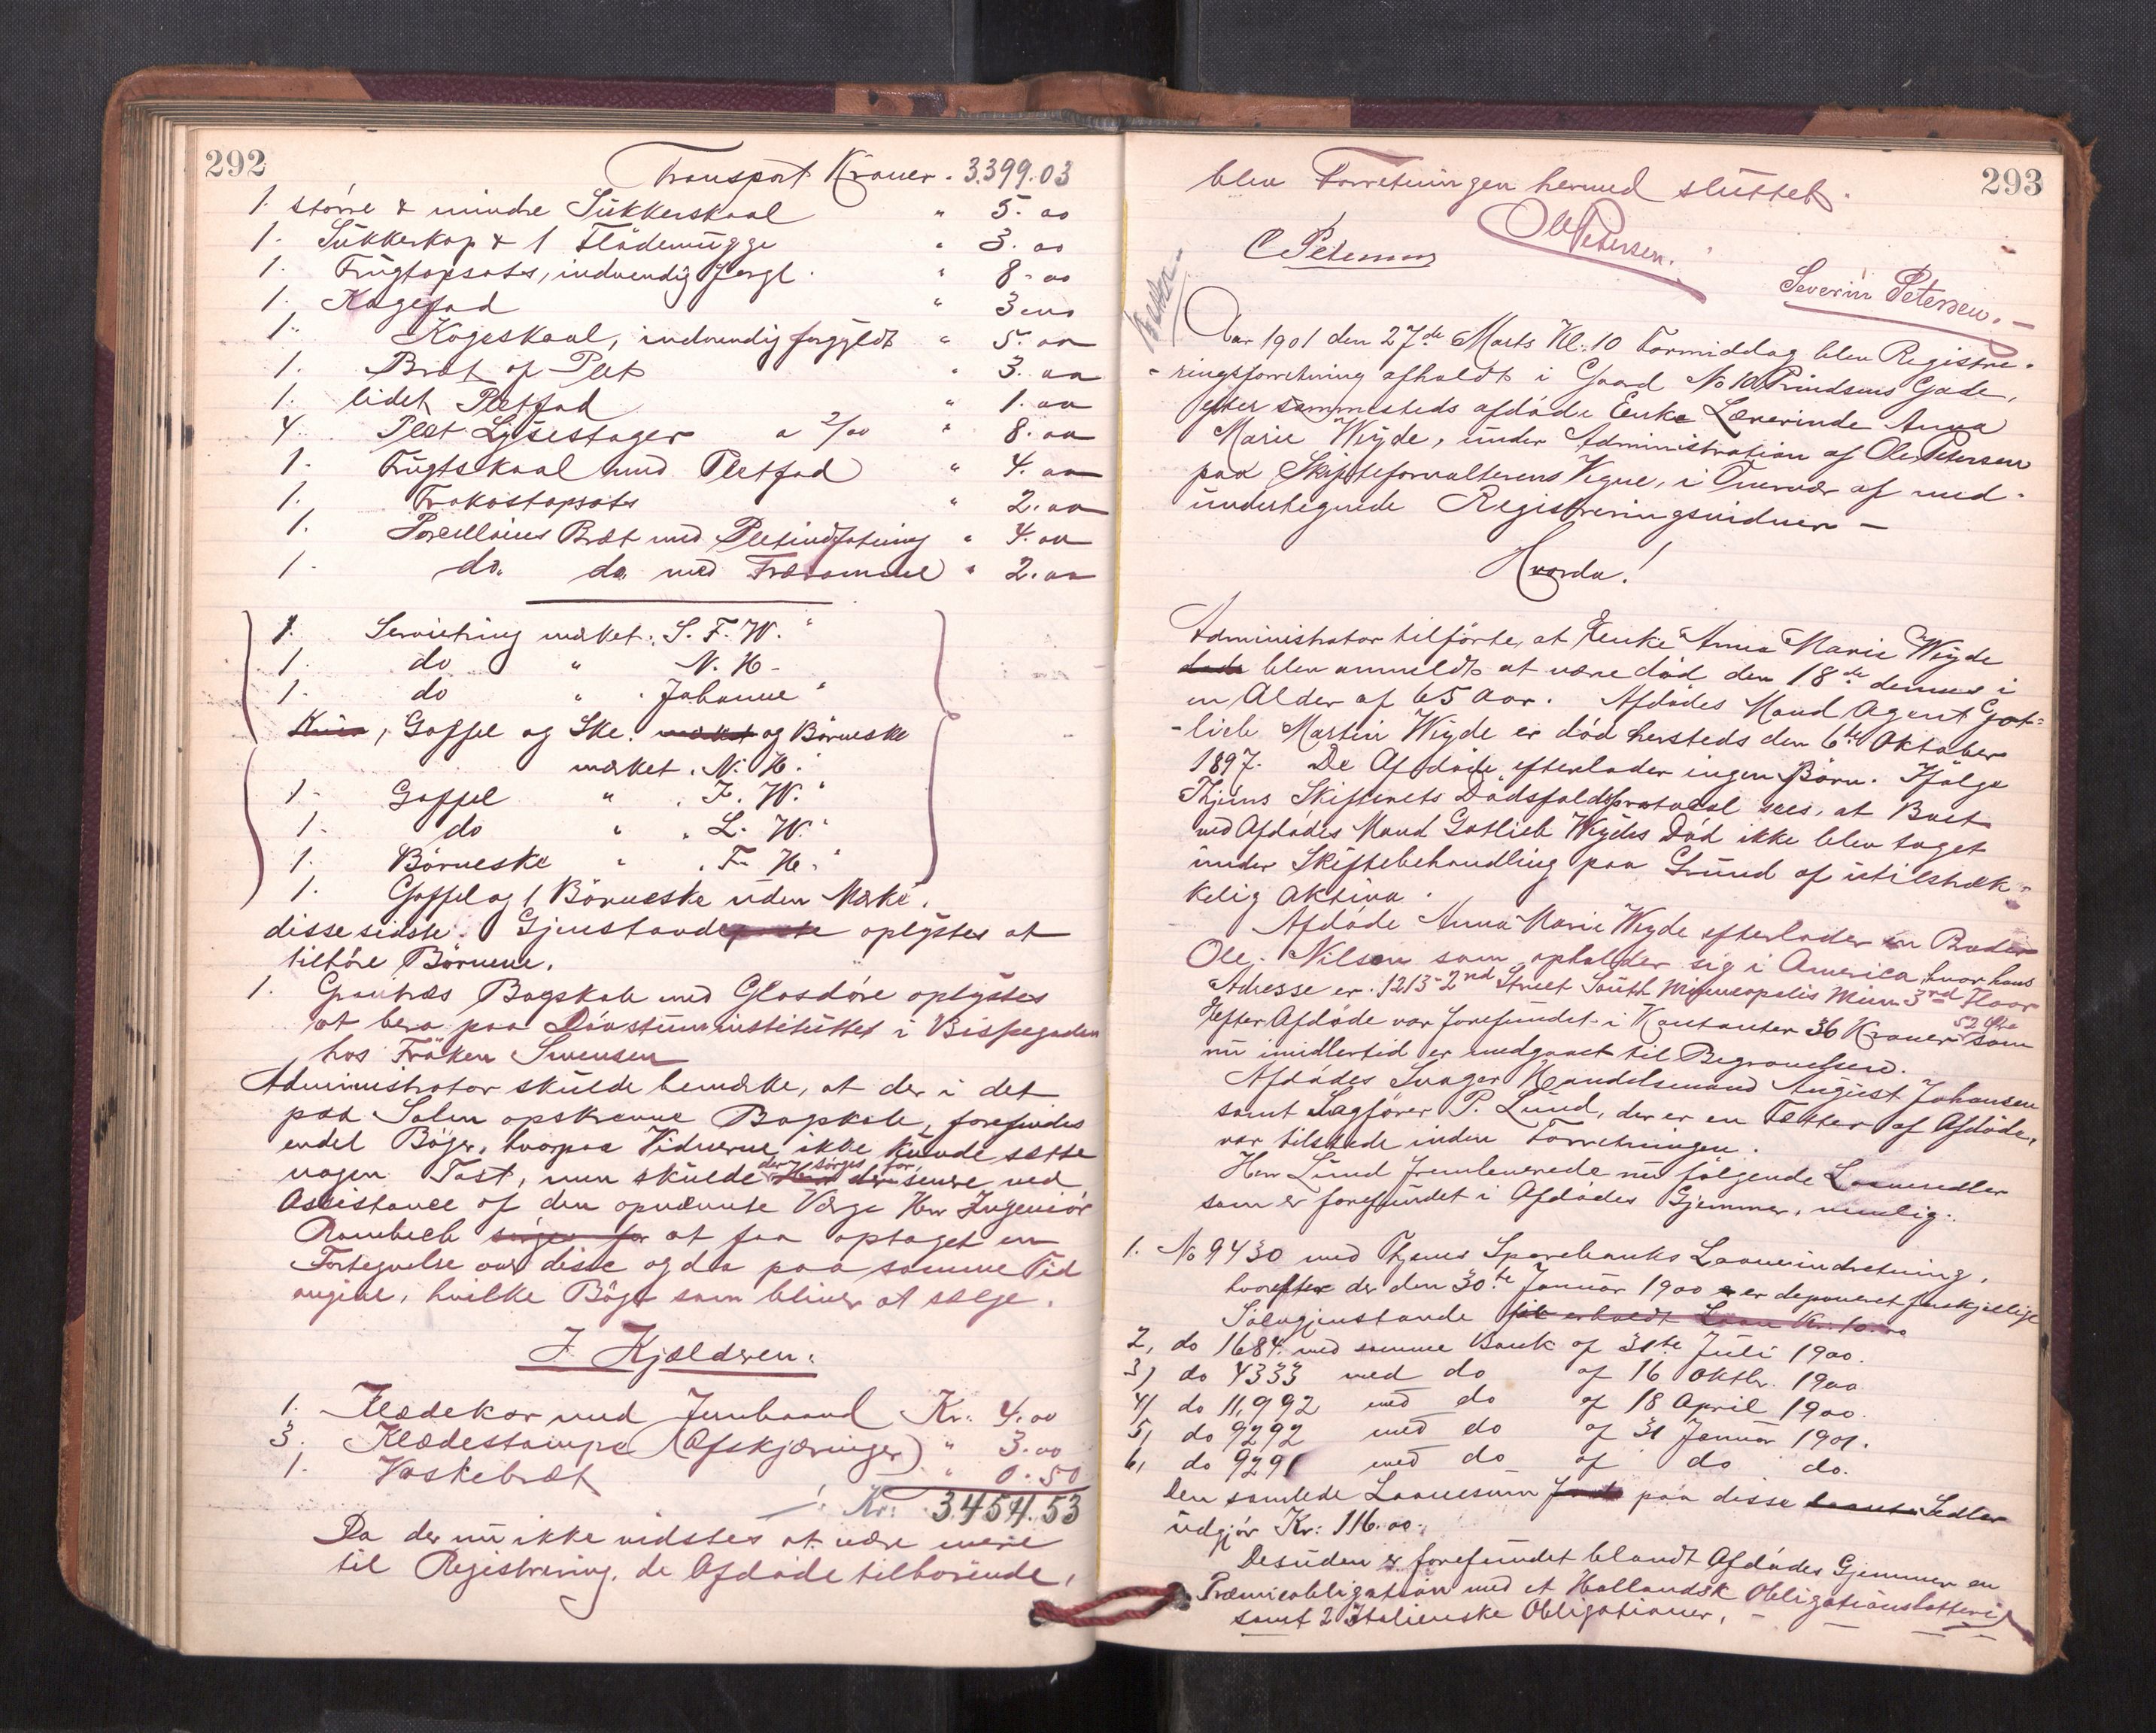 292
Transport Kroner. 3.399.03
1. større & mindre Sükkerskaal " 5.00
1. Sükkerkop & 1 Flödemügge " 3.00
1. Frügtopsats, indvendig forgl. " 8.00
1. Kagefad " 3.00
1. Kageskaal, indvendig forgyldt " 5.00
1. Bræt af Plet " 3.00
1. lidet Pletfad " 1.00
4 Plet Lysestager a 2/00 " 8.00
1. Frügtskaal med Pletfad " 4.00
1. Frokostopsats " 2.00
1. Porcellains Bræt med Pletindfatning " 4.00
1. do. do. med Træramme " 2.00
1. Servietring mærket: S. F. W. "
1. do " N. H.
1. do " Johanne "
Kniv, Gaffel og Ske. mærket og Börneske
mærket. N. H.
1. Gaffel " F. W. "
1. do " L. W. "
1. Börneske " F. H. "
1. Gaffel og 1 Börneske uden Mærke.
disse sidste Gjenstande oplystes at
tilhöre Börnene.
1. Grantræs Bogskab med Glasdöre oplystes
at bero paa Dövstüminstitüttet i Bispegaden
hos Fröken Svensen
Administrator skülde bemærke, at der i det
paa Salen opskrevne Bogskab, forefindes
endel Böger, hvorpaa Vidnerne ikke kunde sætte
nogen Taxt, men skülde der sörges for senere ved
Assistance af den opnævnte Værge Herr Ingeniör
Rambech sörges for at faa optaget en
Fortegnelse over disse og da paa samme Tid
angive, hvilke Böger som bliver at sælge.
I Kjælderen:
1. Klædekar med Jernbaand Kr. 4.00
3. Klædestampe (Afskjæringer) " 3.00
1. Vaskebræt " 0.50
Kr: 3.454.53
Da der nü ikke vidstes at være mere
til Registrering, de Afdöde tilhörende,
293
blev Forretningen hermed slüttet.
C Petersen
Ole Petersen.
Severin Petersen.
Aar 1901 den 27de Marts Kl. 10 Formiddag blev Registre-
-ringsforretning afholdt i Gaard No 10 Prindsens Gade,
efter sammesteds afdöde Enke Lærerinde Anna
Marie Weyde, ünder Administration af Ole Petersen
paa Skifteforvalterens Vegne, i Overvær af med-
ündertegnede Registreringsvidner -
Hvorda!
Administrator tilförte, at Enke Anna Marie Weyde
döde blev anmeldt at være död den 18de dennes i
en Alder af 65 Aar. Afdödes Mand Agent Got-
-lieb Martin Weyde er död hersteds den 6te Oktober
1897. De Afdöde efterlader ingen Börn. Ifölge
Thjems Skifterets Dödsfaldsprotocol sees, at Boet
ved Afdödes Mand Gotlieb Weydes Död ikke blev taget
ünder Skiftebehandling paa Grund af ütilstræk-
kelig Aktiva.
Afdöde Anna Marie Weyde efterlader en Broder
Ole Nilsen som opholder sig i America, hvor hans
Adresse er. 1213-2nd Street South Mineapolis Minn. 3rd Floor
Efter Afdöde var forefundet i Kontanter 36 Kroner 52 Öre som
nü imidlertid er medgaaet til Begravelsen.
Afdödes Svager Handelsmand August Johansen
samt Sagförer P. Lünd, der er en Fætter af Afdöde,
var tilstede ünder Forretningen.
Herr Lünd fremleverede nü fölgende Laanesedler
som er forefündet i Afdödes Gjemmer, nemlig:
1. No 9430 med Thjems Sparebanks Laaneindretning,
hvorefter der den 30te Januar 1900 er deponeret forskjellige
Sölvgjenstande for erholdt Laan Kr. 10.00
2, do 1684. med samme Bank af 31te Juli 1900.
3) do 4333 med do af 16 Oktbr. 1900
4) do 11,992 med do af 18 April 1900.
5) do 9292 med do af 31 Januar 1901.
6, do 9291 med do af do do.
Den samlede Laanesüm paa disse Laane Sedler
üdgjör Kr: 116.00.
Desüden er forefündet blandt Afdödes Gjemmer en
Præmieobligation med et Hollandsk Obligationslotteri
samt 2 Italienske Obligationer.